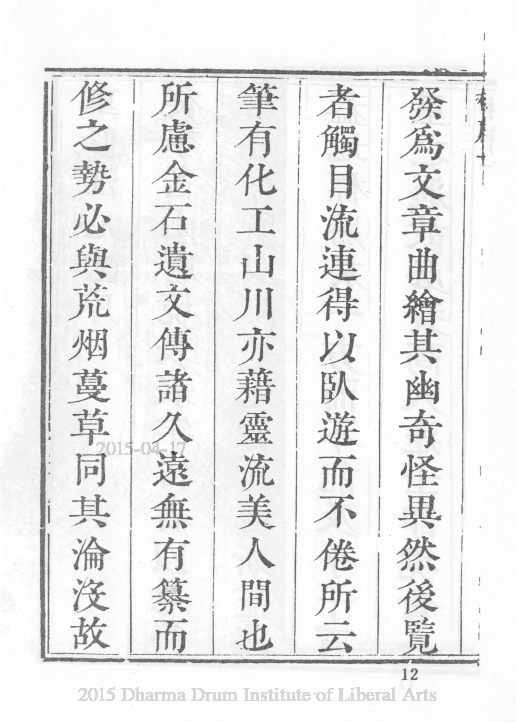 發爲文章曲繪其幽奇怪異然後覽
者觸目流連得以臥遊而不倦所云
筆有化工山川亦藉靈流美人間也
所慮金石遺文傳諸久遠無有纂而
修之勢必與荒烟蔓草同其淪沒故
2015-04-17
12
2015 Dharma Drum Institute of Liberal Arts